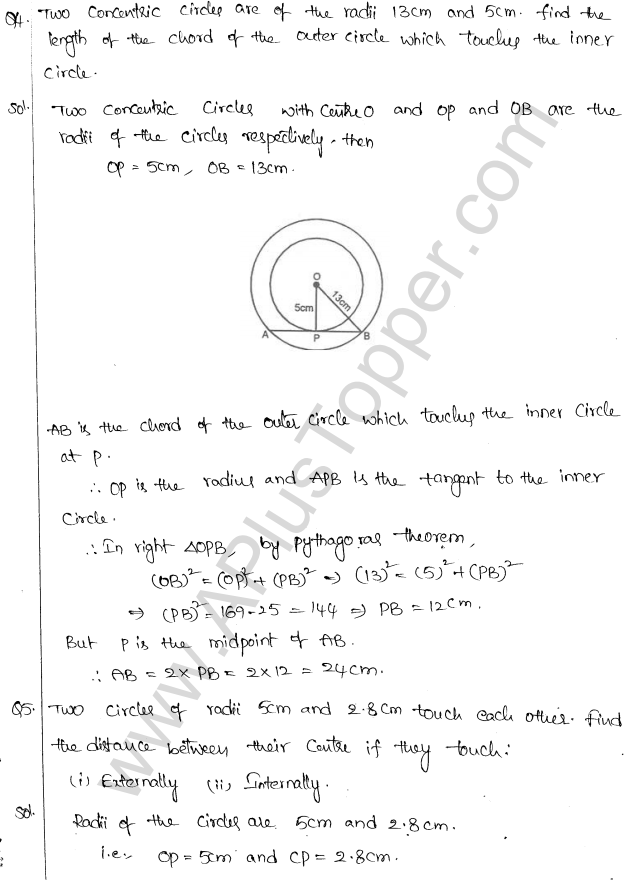 Q4. Two Concentric Circles are of the radii 13cm and 5cm. find the
length of the chord of the outer circle which touches the inner
circle.
Sol. Two Concentric Circles with Centre O and OP and OB are the
radii of the circles respectively. then
OP = 5cm, OB = 13cm.
O
5cm
13cm
A
P
B
AB is the chord of the outer circle which touches the inner Circle
at P.
∴ OP is the radius and APB is the tangent to the inner
Circle.
∴ In right △OPB, by pythagoras theorem,
(OB)² = (OP)² + (PB)² ⇒ (13)² = (5)² + (PB)²
⇒ (PB)² = 169 - 25 = 144 ⇒ PB = 12cm.
But P is the midpoint of AB.
∴ AB = 2 × PB = 2 × 12 = 24cm.
Q5. Two circles of radii 5cm and 2.8cm touch each other. find
the distance between their Centre if they touch:
(i) Externally (ii) Internally.
Sol. Radii of the circles are 5cm and 2.8cm.
i.e., OP = 5cm and CP = 2.8cm.
www.APlusTopper.com